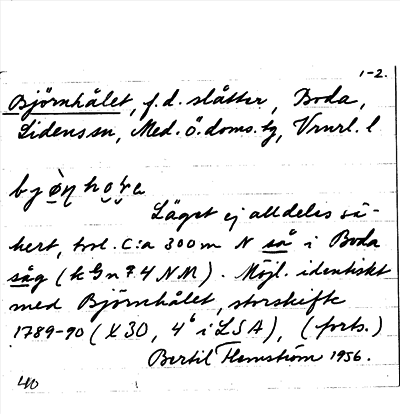 1-2.
Björnhålet, f.d. slåtter, Boda,
Lidens sn, Med. ö. doms. tg, Vrnrl. l
Läget ej alldeles sä-
kert, trol. c:a 300 m N så i Boda
såg (k G n 9.4 NM). Möjl. identiskt
med Björnhålet, storskifte
1789-90 (X30, 4⁶ i LSA), (forts.)
Bertil Flemström 1956.
40